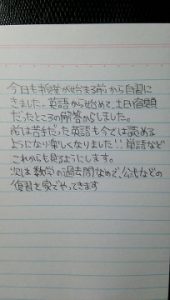 今日も授業が始まる前から自習に
きました。英語から始めて、土日宿題
だったところの解答からしました。
前は苦手だった英語も今では読める
ようになり楽しくなりました!! 単語など
これからも見るようにします。
次は数学の過去問なので、公式などの
復習を家でやってきます